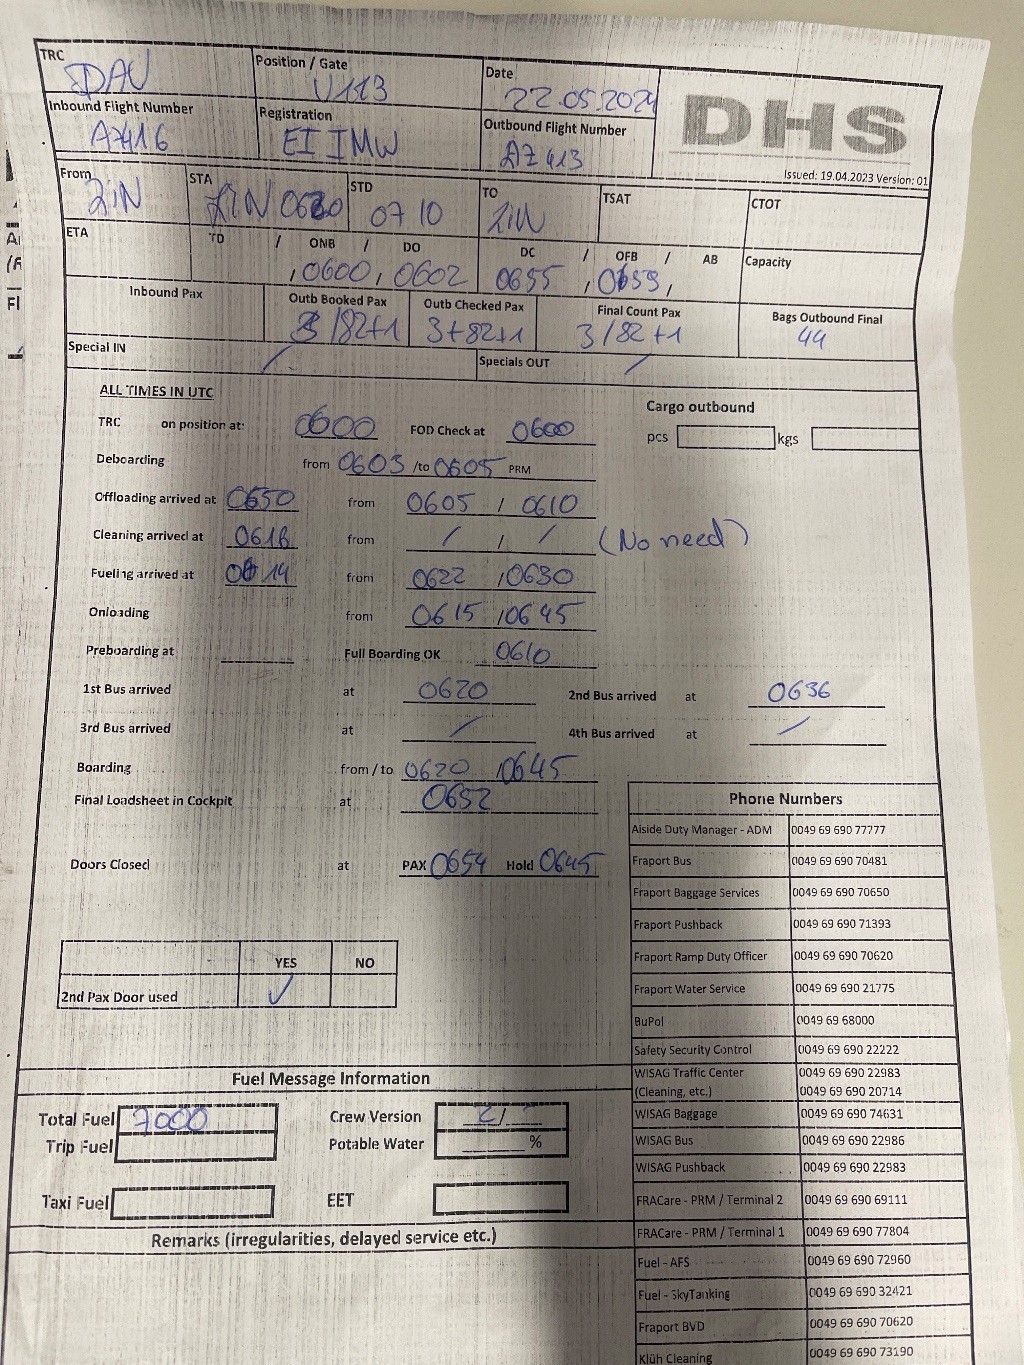 TRC DAV Position / Gate V113 Date 22.05.2024 DHS
Inbound Flight Number AZ416 Registration EI IMW Outbound Flight Number AZ 413
Issued: 19.04.2023 Version: 01
From LIN STA LIN STD 07 10 TO LIN TSAT CTOT
ETA TD / ONB / DO DC / OFB / AB Capacity
, 0600, 0602 0655 , 0659,
Inbound Pax Outb Booked Pax Outb Checked Pax Final Count Pax Bags Outbound Final
3/82+1 3+82+1 3/82+1 44
Special IN / Specials OUT /
ALL TIMES IN UTC
Cargo outbound
TRC on position at: 0600 FOD Check at 0600 pcs kgs
Deboarding from 0603 /to 0605 PRM
Offloading arrived at 0550 from 0605 / 0610
Cleaning arrived at from / / / (No need)
Fueling arrived at 0614 from 0622 / 0630
Onloading from 0615 / 0645
Preboarding at Full Boarding OK 0610
1st Bus arrived at 0620 2nd Bus arrived at 0636
3rd Bus arrived at / 4th Bus arrived at /
Boarding from / to 0620 / 0645
Final Loadsheet in Cockpit at 0652
Doors Closed at PAX 0654 Hold 0645
YES NO
2nd Pax Door used ✓
Fuel Message Information
Total Fuel 7000 Crew Version 2/
Trip Fuel Potable Water %
Taxi Fuel EET
Remarks (irregularities, delayed service etc.)
Phone Numbers
Aiside Duty Manager - ADM 0049 69 690 77777
Fraport Bus 0049 69 690 70481
Fraport Baggage Services 0049 69 690 70650
Fraport Pushback 0049 69 690 71393
Fraport Ramp Duty Officer 0049 69 690 70620
Fraport Water Service 0049 69 690 21775
BuPol 0049 69 68000
Safety Security Control 0049 69 690 22222
WISAG Traffic Center 0049 69 690 22983
(Cleaning, etc.) 0049 69 690 20714
WISAG Baggage 0049 69 690 74631
WISAG Bus 0049 69 690 22986
WISAG Pushback 0049 69 690 22983
FRACare - PRM / Terminal 2 0049 69 690 69111
FRACare - PRM / Terminal 1 0049 69 690 77804
Fuel - AFS 0049 69 690 72960
Fuel - SkyTanking 0049 69 690 32421
Fraport BVD 0049 69 690 70620
Klüh Cleaning 0049 69 690 73190